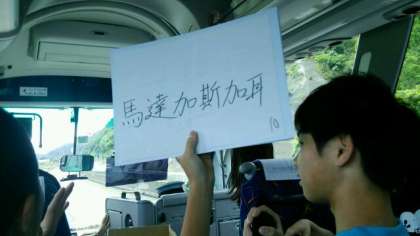 馬達加斯加耳
10